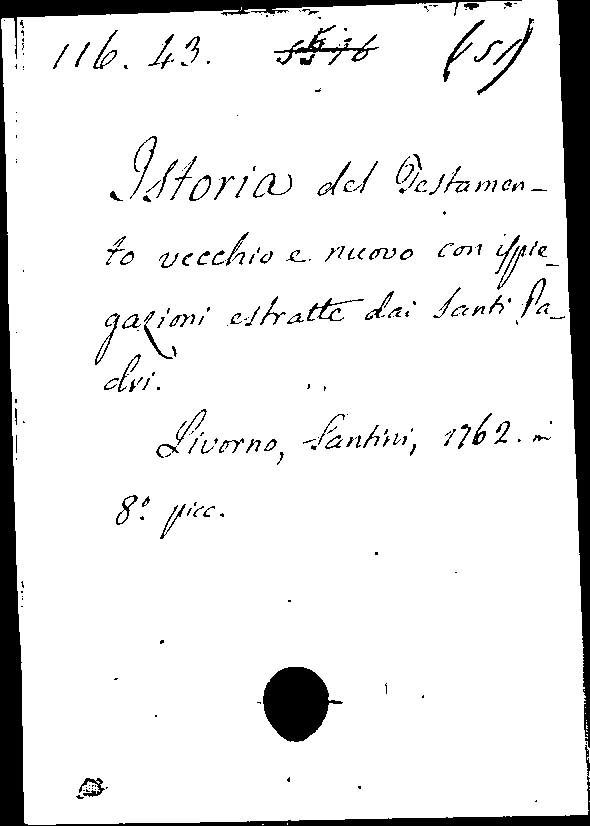 116. 43. (51)
Istoria del Testamen-
to vecchio e nuovo con ispie-
gazioni estratte dai Santi Pa-
dri.
Livorno, Santini, 1762. in
8.º picc.